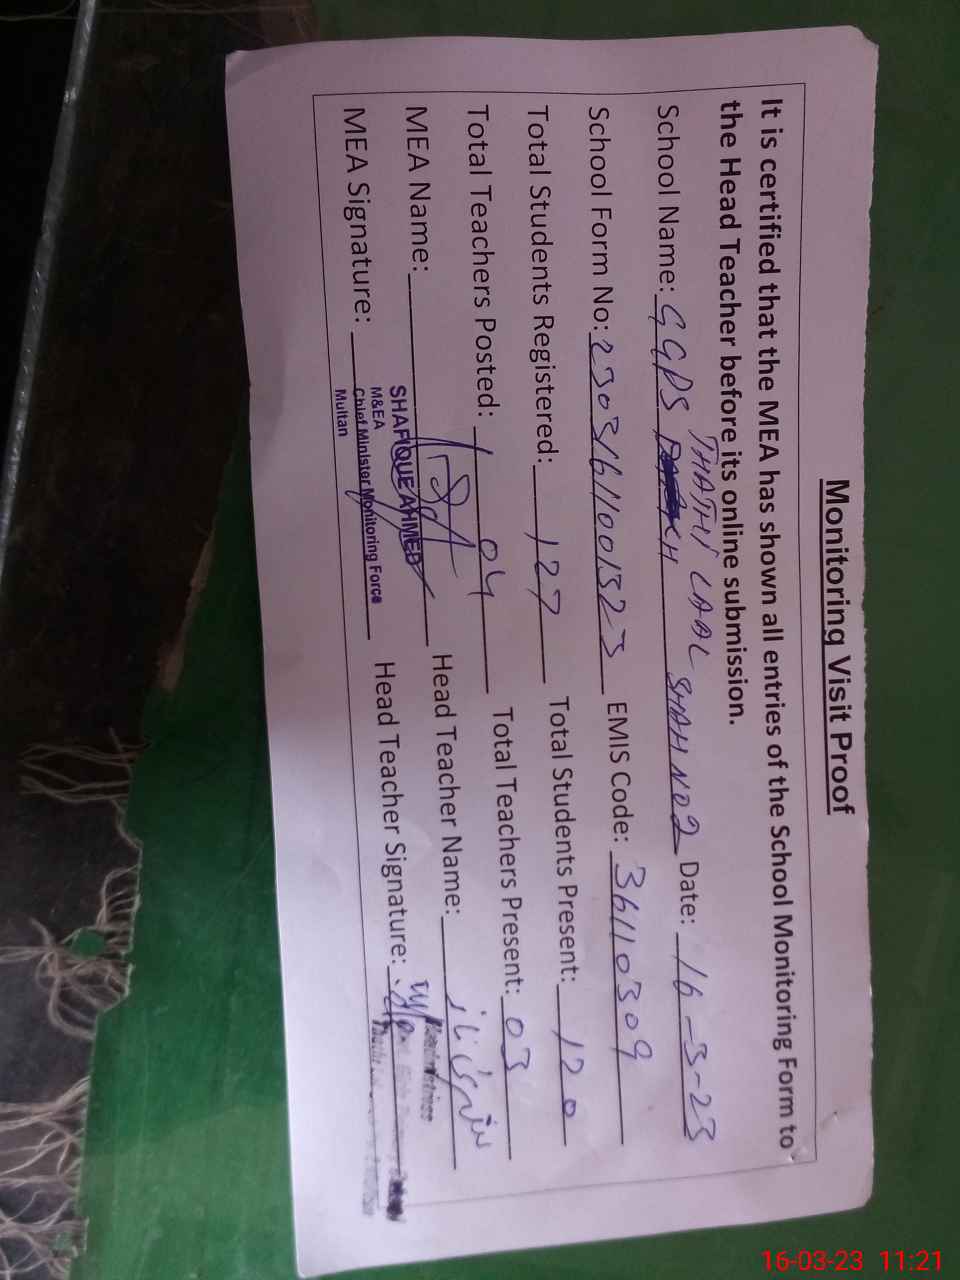 Monitoring Visit Proof
It is certified that the MEA has shown all entries of the School Monitoring Form to
the Head Teacher before its online submission.
THATHI LAAL SHAH NO2
School Name: GGPS Date: 16-3-23
School Form No: 23031611001523 EMIS Code: 36110309
Total Students Registered: 127 Total Students Present: 120
Total Teachers Posted: 04 Total Teachers Present: 03
MEA Name: Head Teacher Name:
SHAFIQUE AHMED
M&EA
MEA Signature: Head Teacher Signature:
Chief Minister Monitoring Force
Multan
Headmistress
16-03-23 11:21